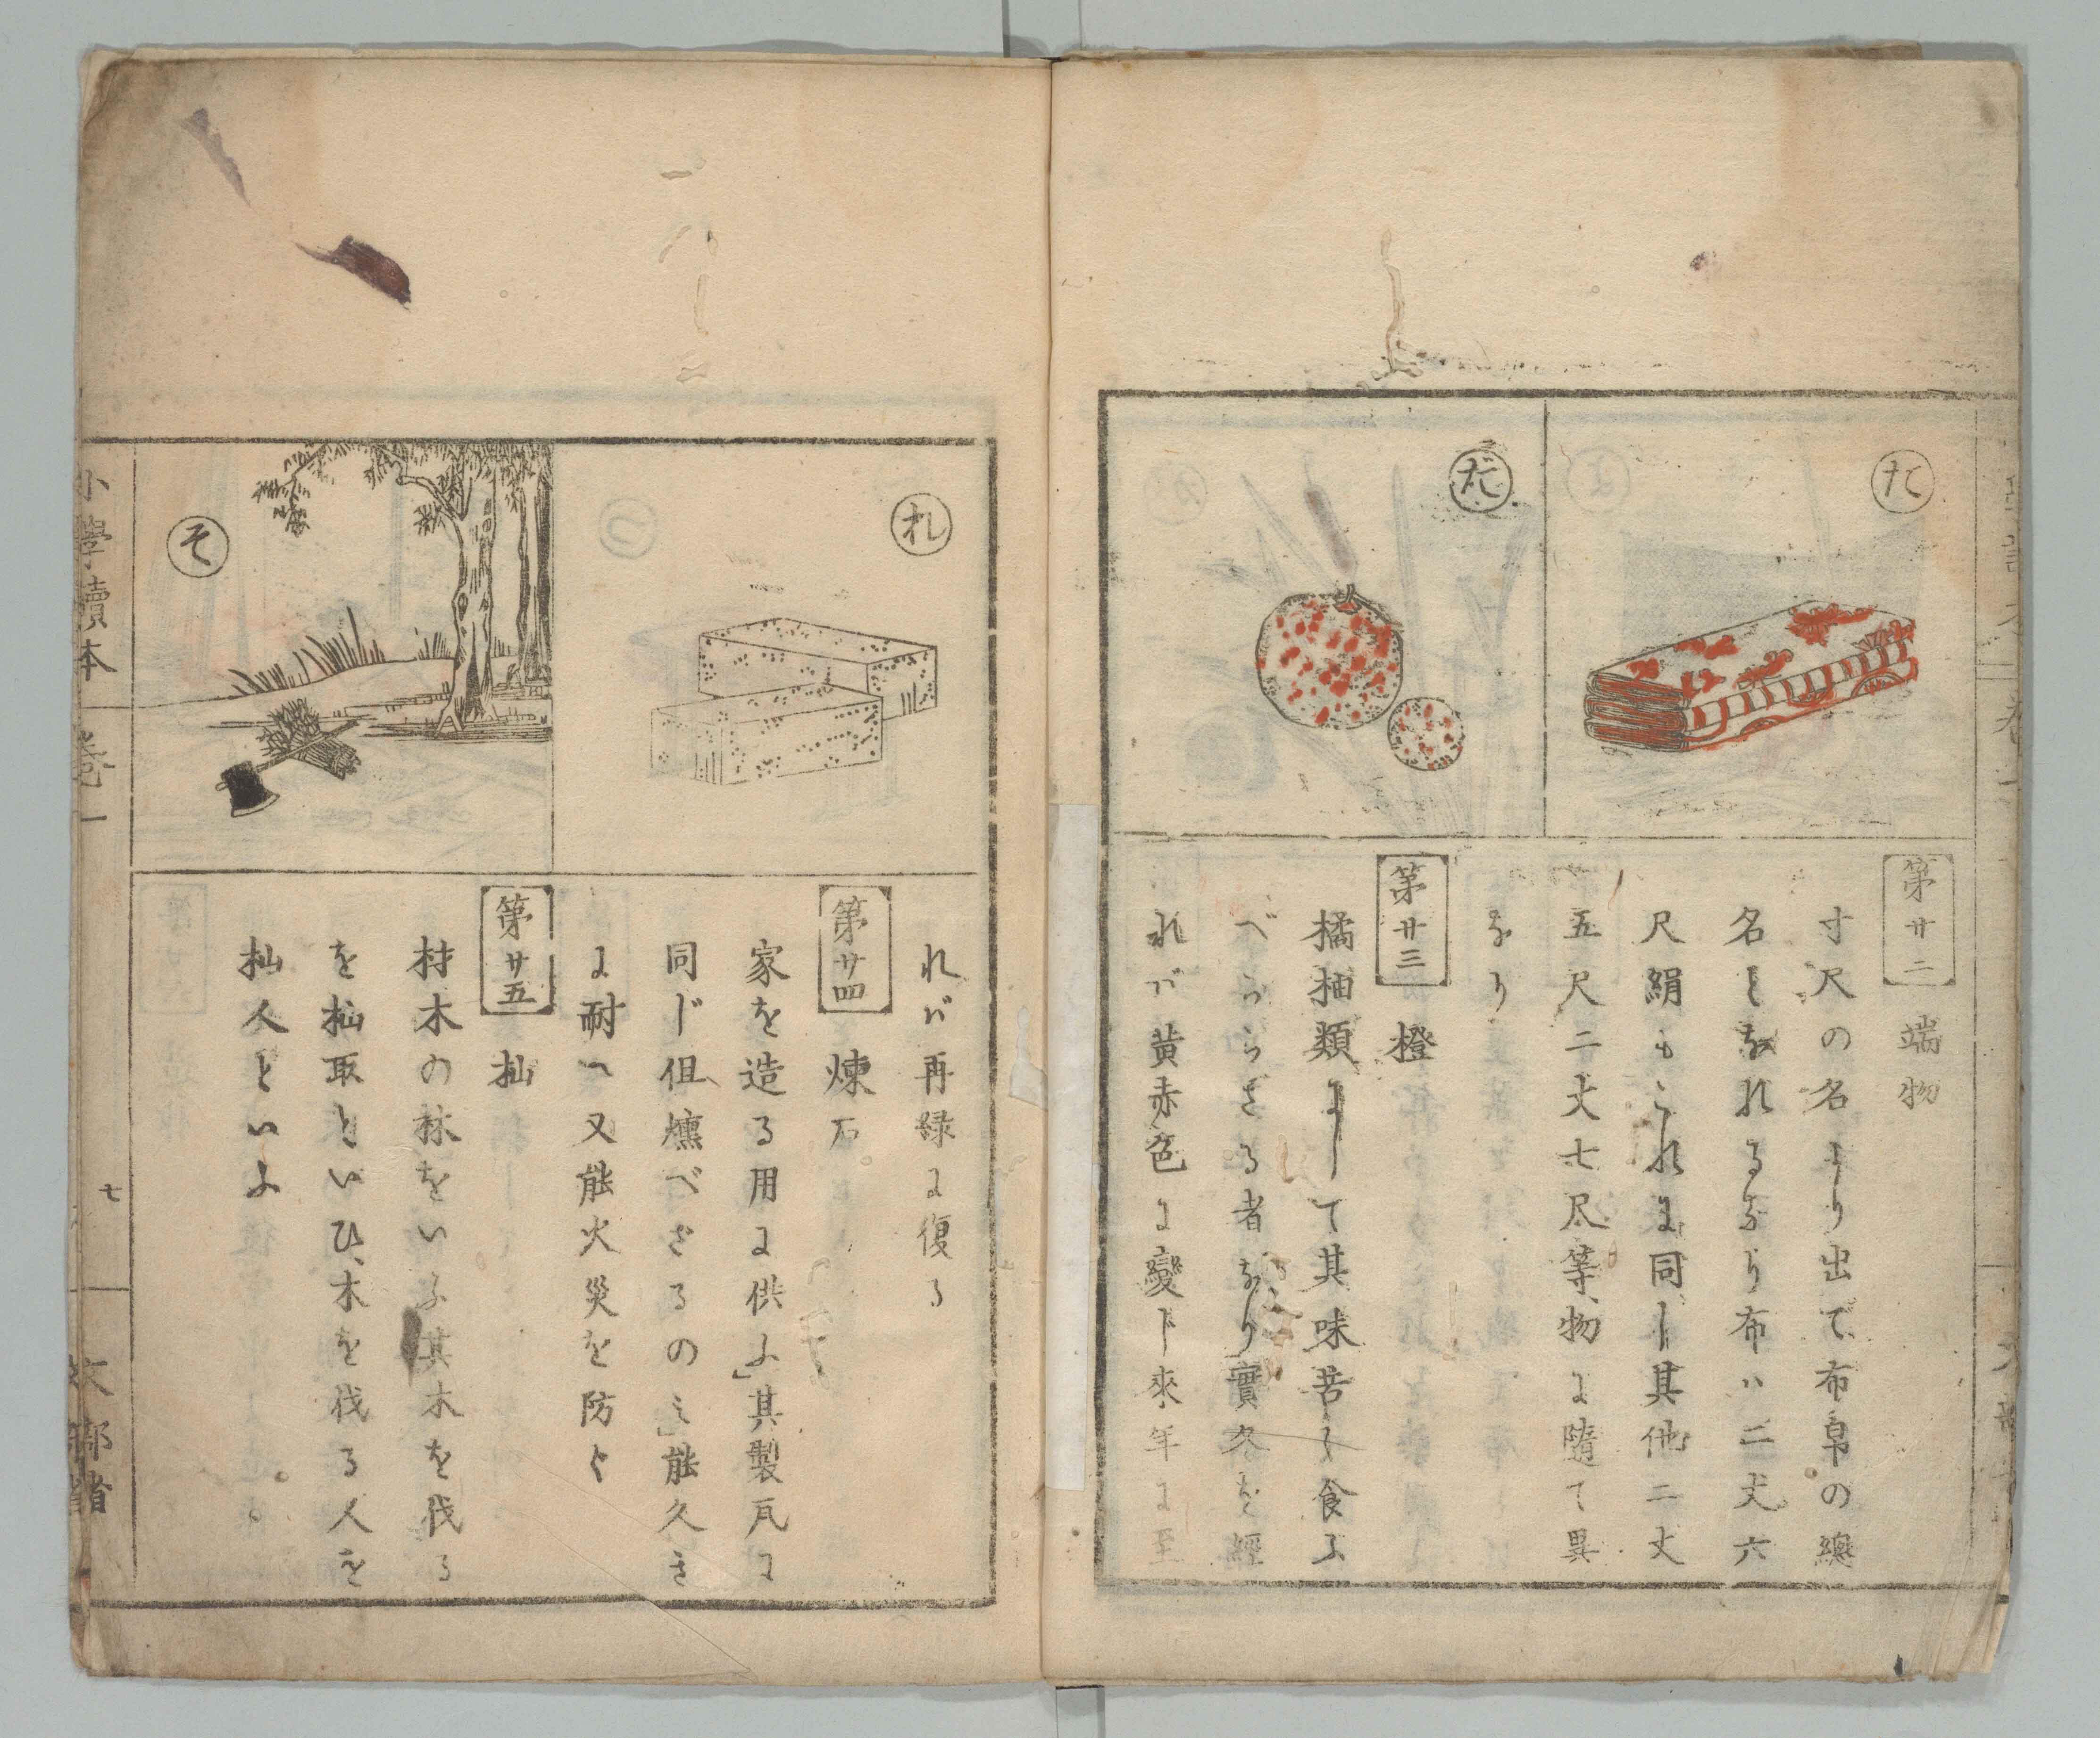 た
だ
第廿二 端物
寸尺の名より出て布帛の總
名となれるなり布ハ二丈六
尺絹もこれに同じ其他二丈
五尺二丈七尺等、物に隨て異
なり
第廿三 橙
橘柚類にして其味苦く食ふ
べからざる者なり實久を經
れバ黄赤色に變ド來年に至
れ
そ
れバ再緑に復る
第廿四 煉石
家を造る用に供ふ」其製瓦に
同ド但、燻べざるのミ」能久き
に耐へ又能火災を防ぐ
第廿五 杣
材木の林をいふ其木を伐る
を杣取といひ、木を伐る人を
杣人といふ
小學讀本
卷一
七
文部省